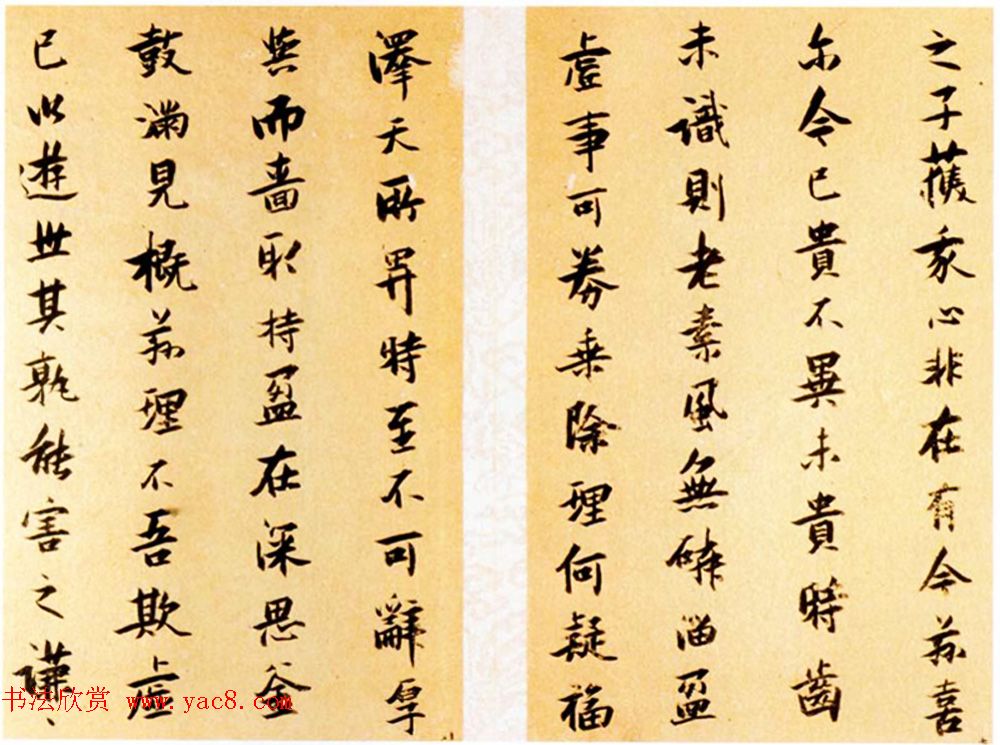 之子獲我心非在有今茲喜
尓今已貴不異未貴時齒
未識則老素風無磷淄盈
虛事可券乘除理何疑福
澤天所畀時至不可辭厚
與而嗇取持盈在深思釜
鼓滿見概茲理不吾欺虛
已以遊世其孰能害之謙〻
书法欣赏 www.yac8.com